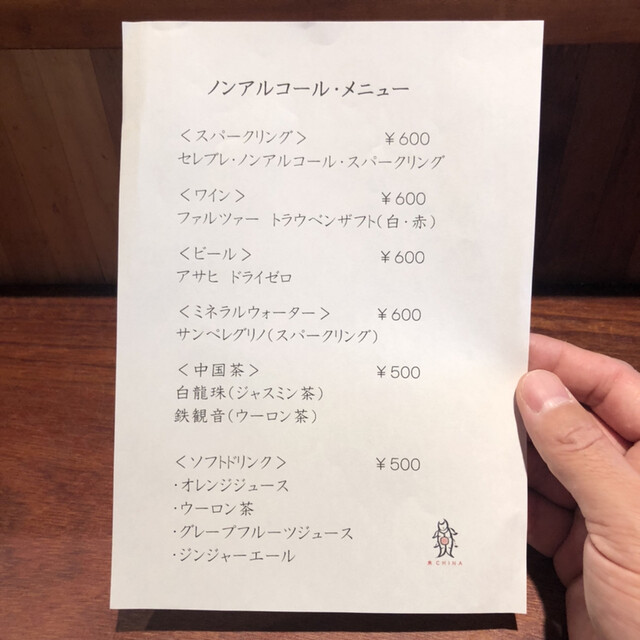 ノンアルコール・メニュー
＜スパークリング＞ ￥600
セレブレ・ノンアルコール・スパークリング
＜ワイン＞ ￥600
ファルツァー トラウベンザフト(白・赤)
＜ビール＞ ￥600
アサヒ ドライゼロ
＜ミネラルウォーター＞ ￥600
サンペレグリノ(スパークリング)
＜中国茶＞ ￥500
白龍珠(ジャスミン茶)
鉄観音(ウーロン茶)
＜ソフトドリンク＞ ￥500
・オレンジジュース
・ウーロン茶
・グレープフルーツジュース
・ジンジャーエール
CHINA